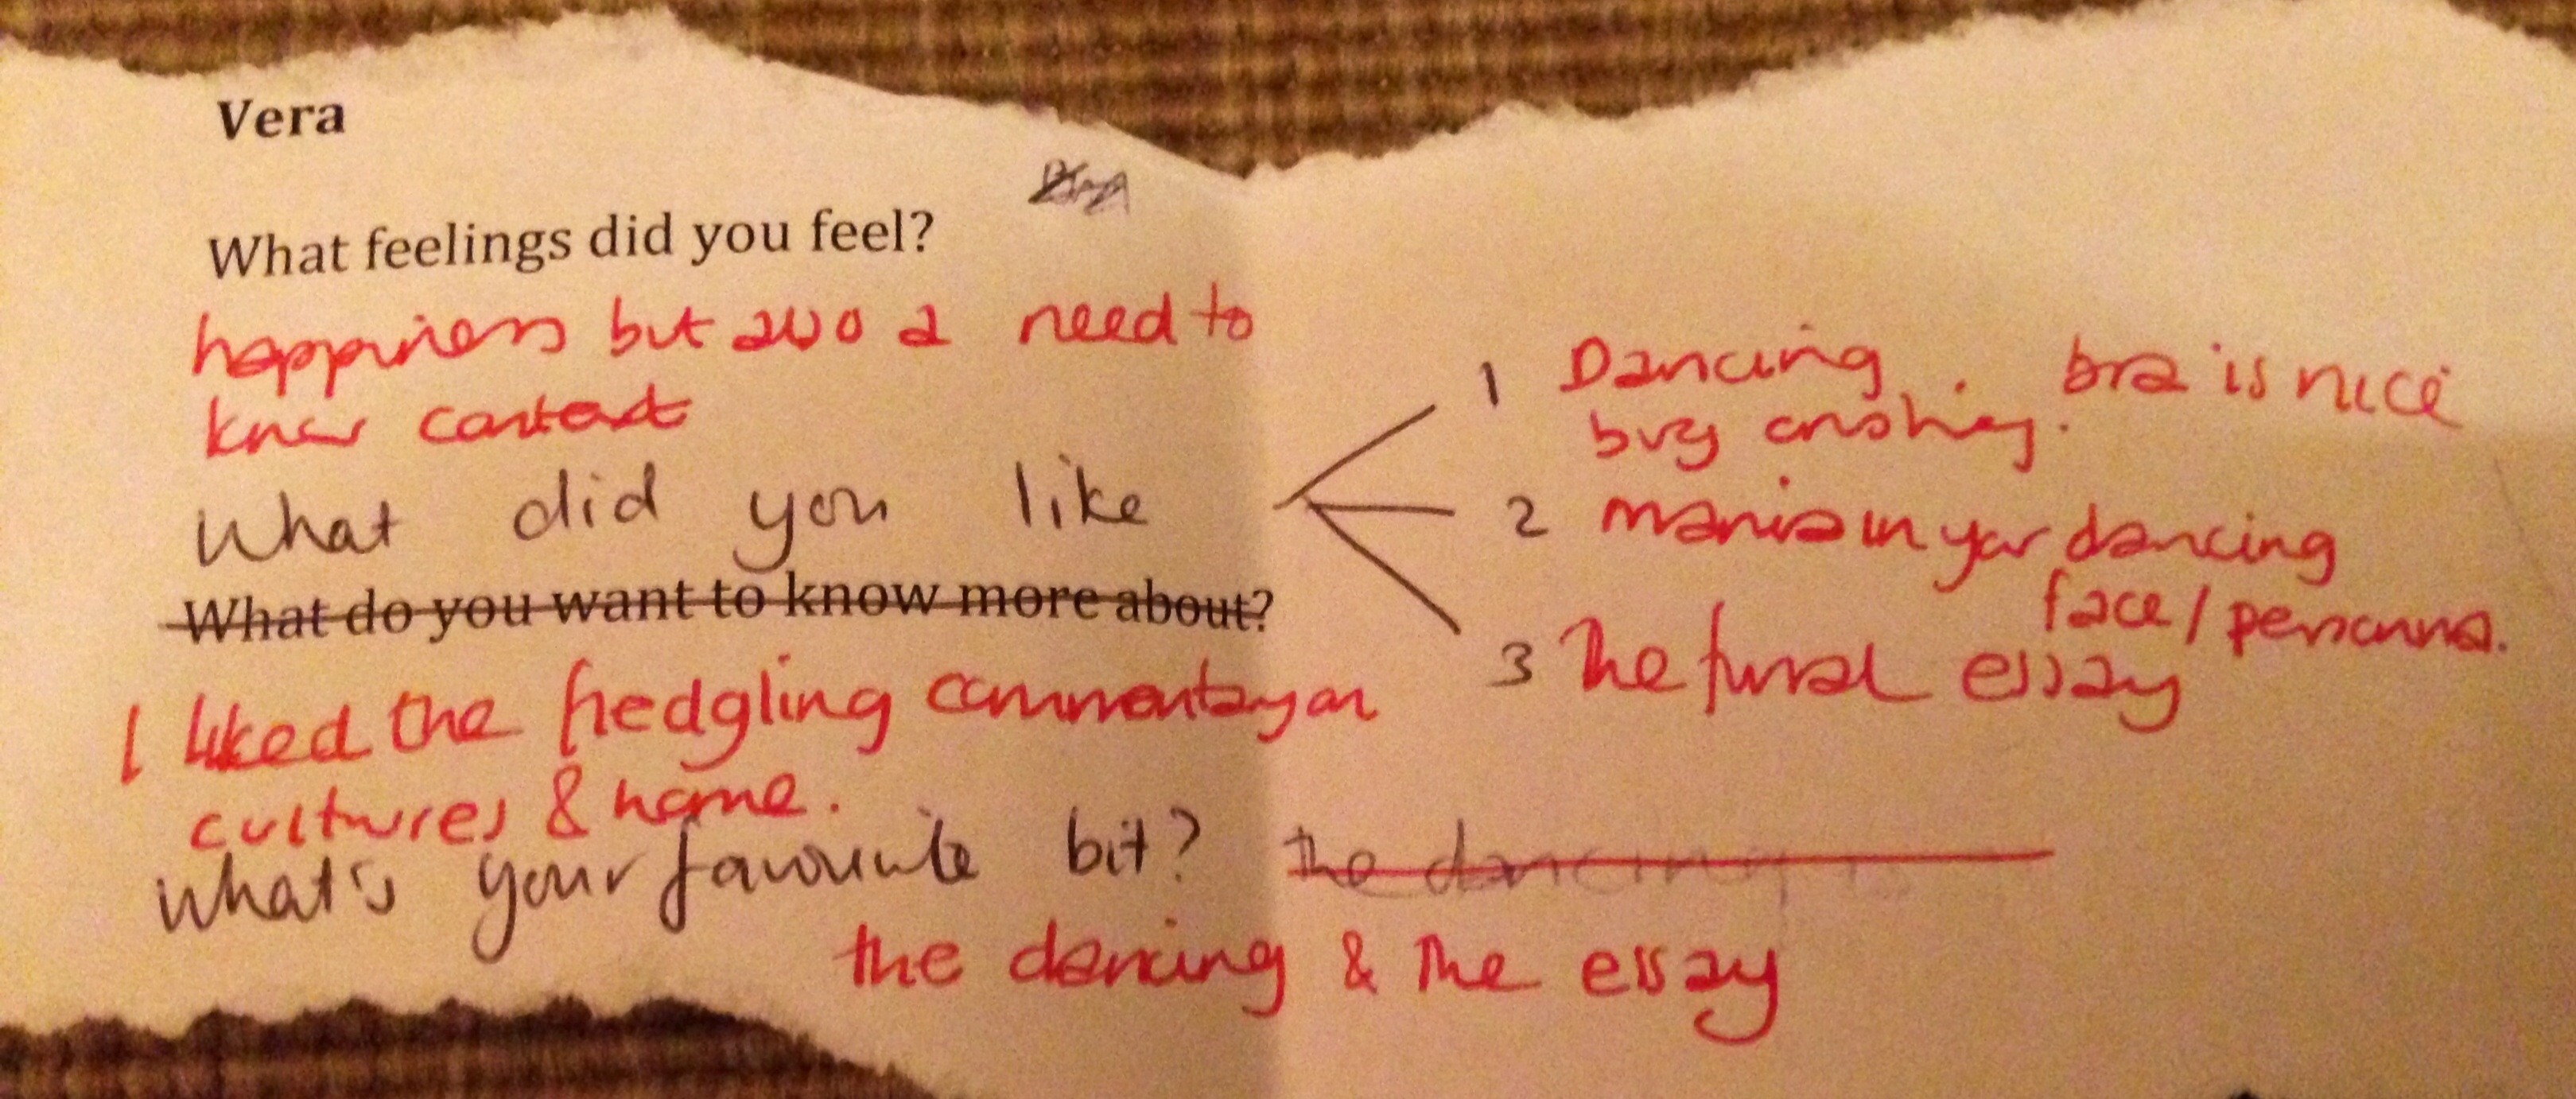 Vera
What feelings did you feel?
happiness but also a need to
know context
What did you like
1 Dancing . bra is nice
bug crushing.
2 mania in your dancing
face / personna.
3 The final essay
What do you want to know more about?
I liked the fledgling commentary on
cultures & home.
What's your favourite bit? the dancing is
the dancing & the essay